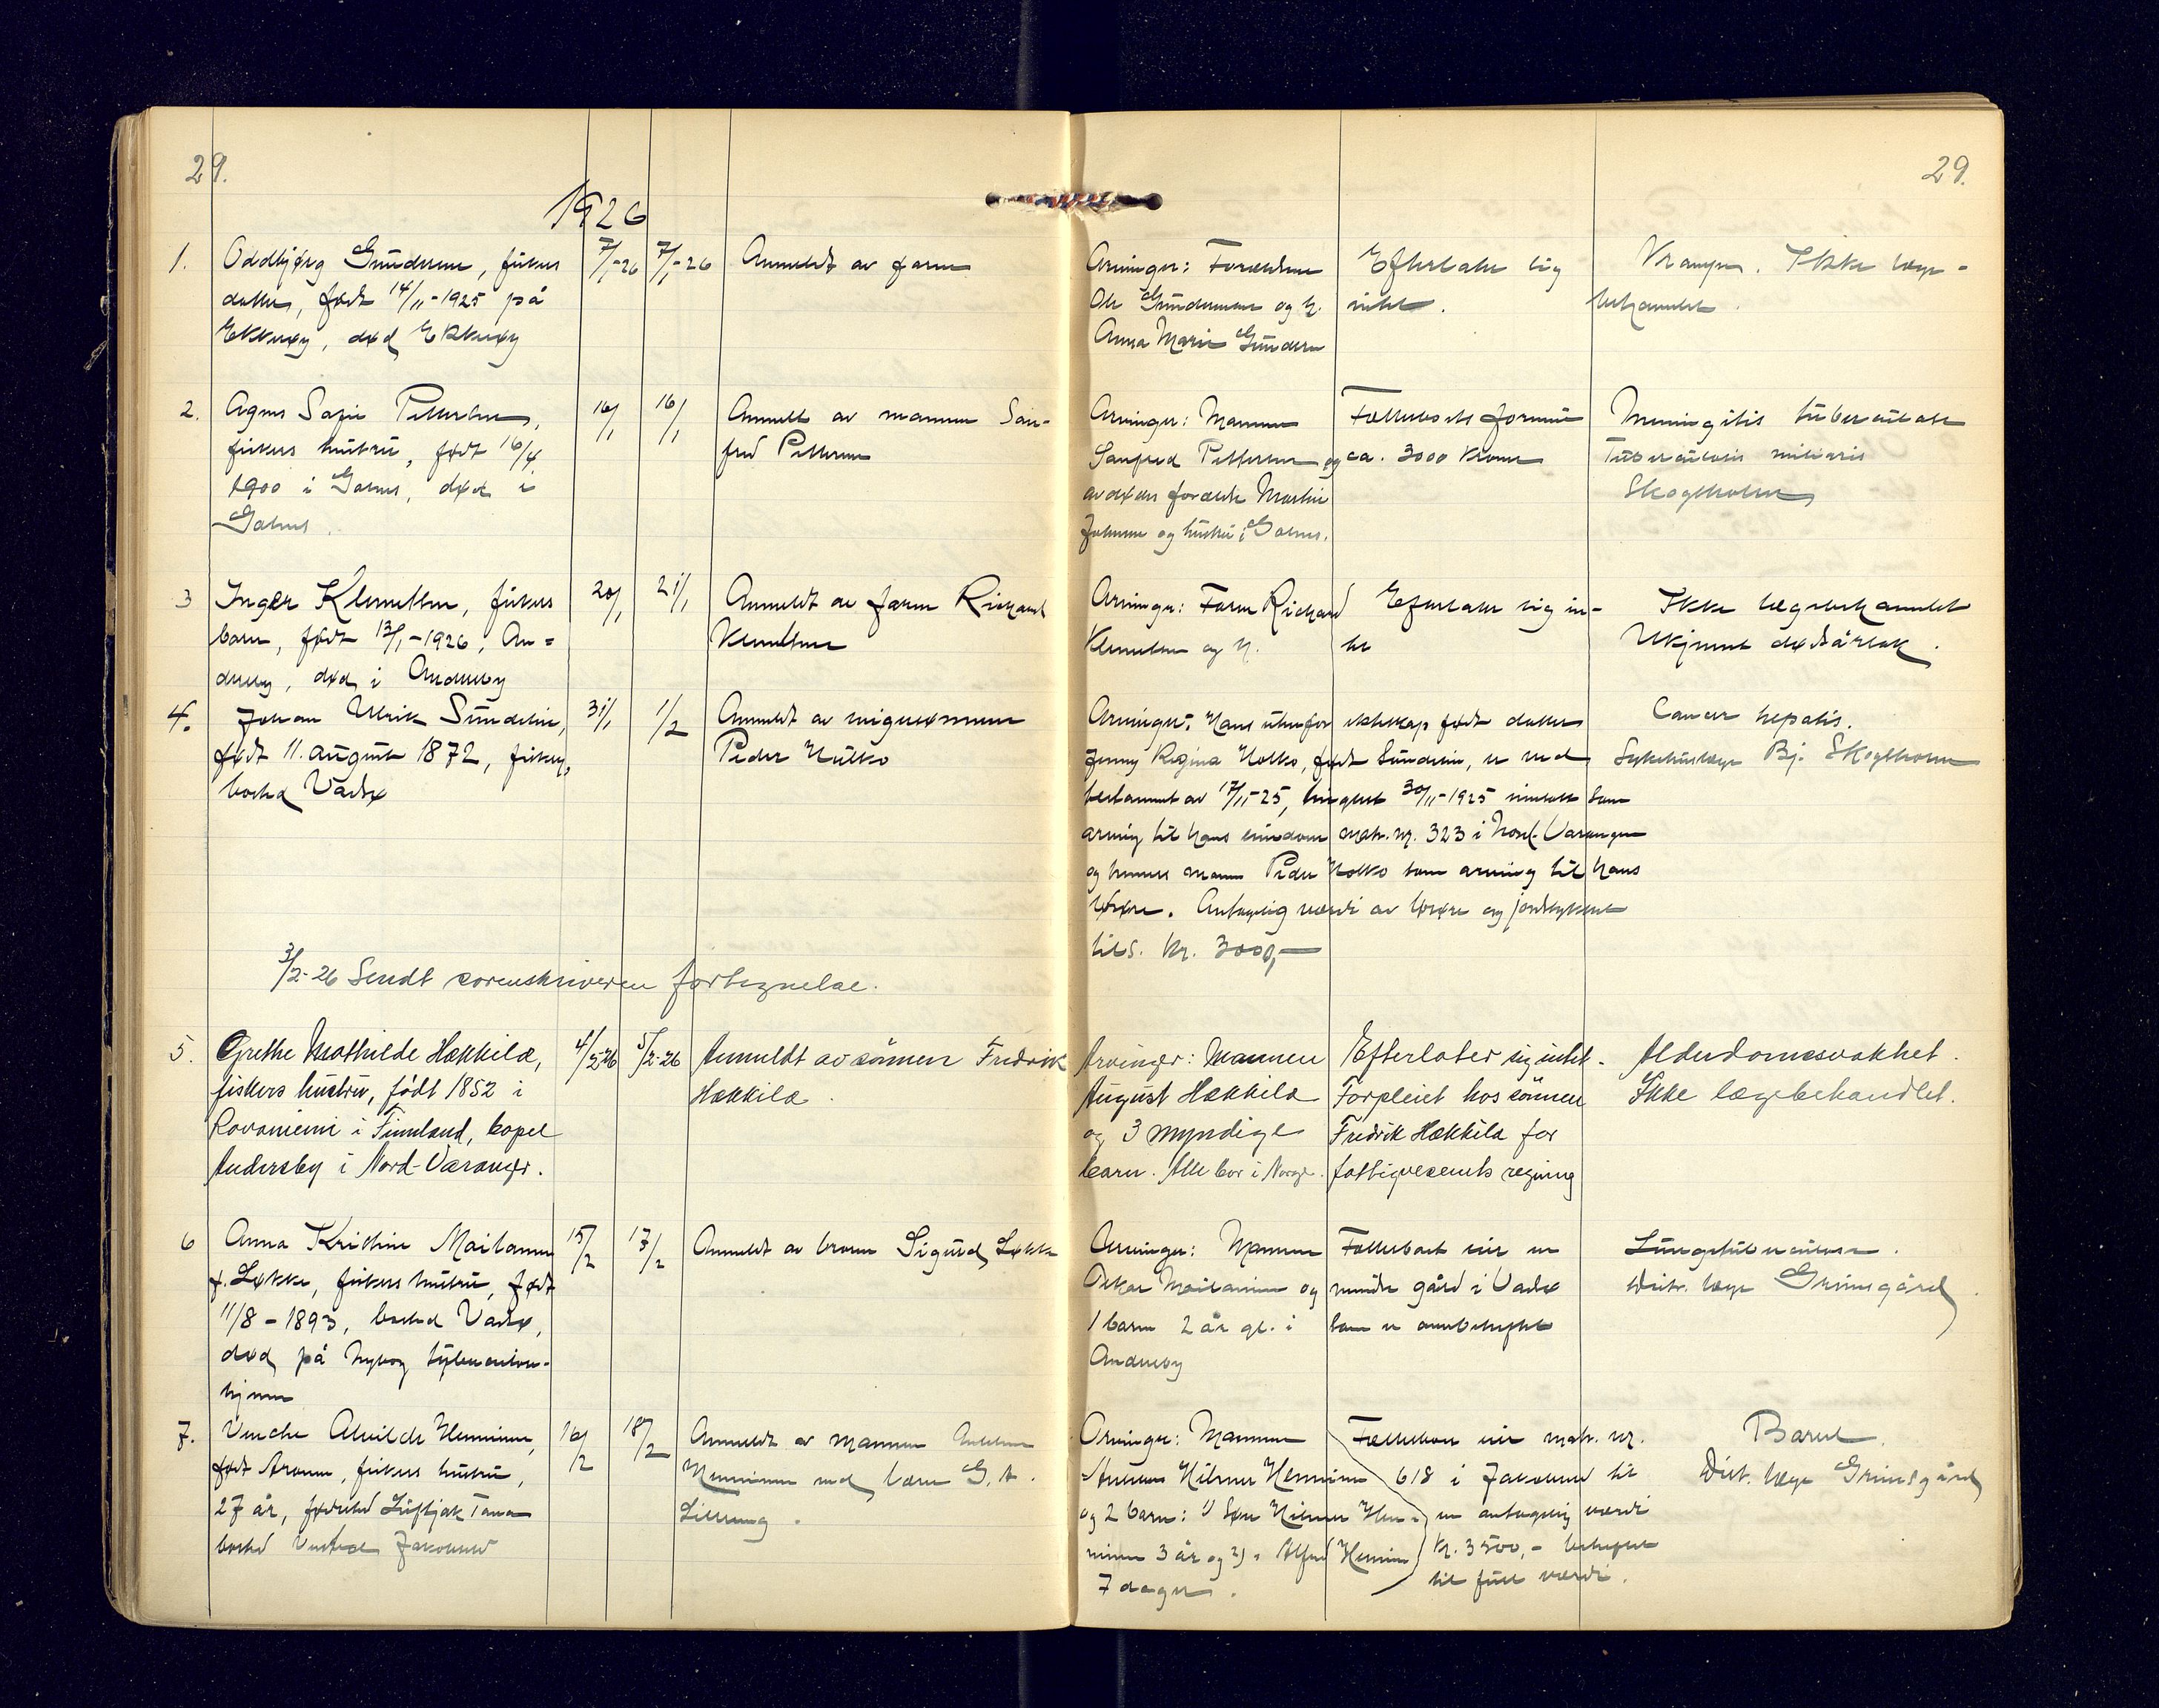 29.
29.
1926
1. Oddbjørg Gundersen, fiskers
datter, født 14/11-1925 på
Ekkerøy, død Ekkerøy
7/1-26 7/1-26
Anmeldt av faren
Arvinger: Forældrene
Ole Gundersen og h.
Anna Marie Gunders
Efterlater sig
intet.
Kramper. Ikke læge-
behandlet.
2. Agnes Sofie Pettersen,
fiskers hustru, født 16/4
1900 i Golnes, død i
Golnes.
16/1 16/1
Anmeldt av mannen San-
fred Pettersen
Arvinger: Mannen
Sanfred Pettersen og
avdødes forældre Martin
Johnsen og hustru i Golnes.
Fællesboets formue
ca. 3000 kroner
Meningitis tuberculosa
Tuberculosis miliaris
Skogholm
3 Inger Klemetsen, fiskers
barn, født 13/1-1926, An=
dersby, død i Andersby
20/1 21/1
Anmeldt av faren Richard
Klemetsen
Arvinger: Faren Richard
Klemetsen og h.
Efterlater sig in-
tet
Ikke lægebehandlet
Ukjennt dødsårsak.
4. Johan Ulrik Sundelin,
født 11. august 1872, fisker,
bosted Vadsø
31/1 1/2
Anmeldt av svigersønnen
Peder Hulko
Arvinger: Hans utenfor ekteskap født datter
Jenny Regina Holko, født Sundelin, er ved
testament av 17/11-25, tinglest 30/11-1925 innsatt som
arving til hans eiendom matr. nr. 323 i Nord-Varanger
og hennes mann Peder Holko som arving til hans
løsøre. Antagelig værdi av løsøre og jordstykket
tils. kr. 3000,-
Cancer hepatis.
Sykehuslæge Bj. Skogholm
3/2-26 Sendt sorenskriveren fortegnelse.
5. Grethe Mathilde Hækkilæ,
fiskers hustru, født 1852 i
Rovaniemi i Finnland, bopel
Andersby i Nord-Varanger.
4/2-26 5/2-26
Anmeldt av sönnen Fredrik
Hækkilæ.
Arvinger: Mannen
August Hækkilæ
og 3 myndige
barn. Alle bor i Norge.
Efterlater sig intet.
Forpleiet hos sönnen
Fredrik Hækkilæ for
fattigvesenets regning
Alderdomssvakhet.
Ikke lægebehandlet.
6 Anna Kristine Mailanen
f. Løkke, fiskers hustru, født
11/8 - 1893, bosted Vadsø,
død på Nyborg tuberculose-
hjem
15/2 17/2
Anmeldt av broren Sigurd Løkke
Arvinger: Mannen
Oskar Mailanen og
1 barn 2 år gl. i
Andersby
Fællesboet eier en
mindre gård i Vadsø
som er overbeheftet
Lungetuberculose.
Distr. læge Grimsgård.
7. Venche Alvilde Henninen,
født Aronsen, fiskers hustru,
27 år, fødested Luftjok Tana
bosted Vestre Jakobselv
16/2 18/2
Anmeldt av mannen
Henninen ved G. A.
Arvinger: Mannen
Hilmer Henninen
og 2 barn: 1) Søn Hilmer Hen-
ninen 3 år og 2) " Alfred Henninen
7 dager.
Fællesboet eier matr. nr.
618 i Jakobselv til
en antagelig værdi
kr. 3500,- beheftet
til full værdi.
Barsel.
Dist. læge Grimsgård